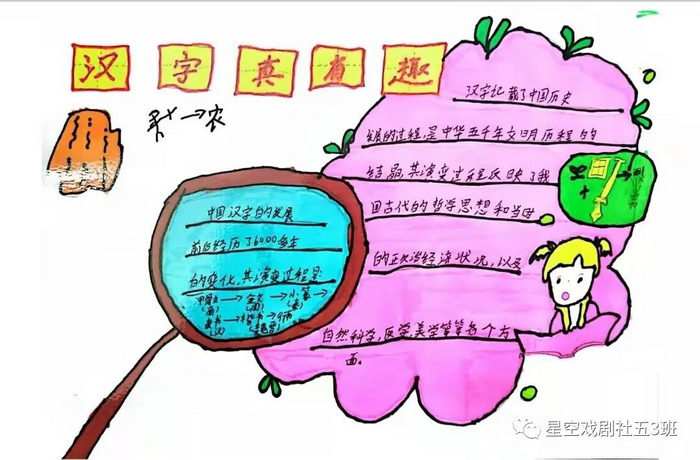 汉字真有趣
→农
汉字记载了中国历史
发展的过程,是中华五千年文明历程的
结晶,其演变过程反映了我
国古代的哲学思想和当时
的正治经济状况,以及
自然科学,医学,美学等等各个方
面。
中国汉字的发展
前后经历了6000多年
的变化,其演变过程是:
甲骨文→金文→小篆→
(商) (周) (秦)
隶书→楷书→行书
(汉)
星空戏剧社五3班